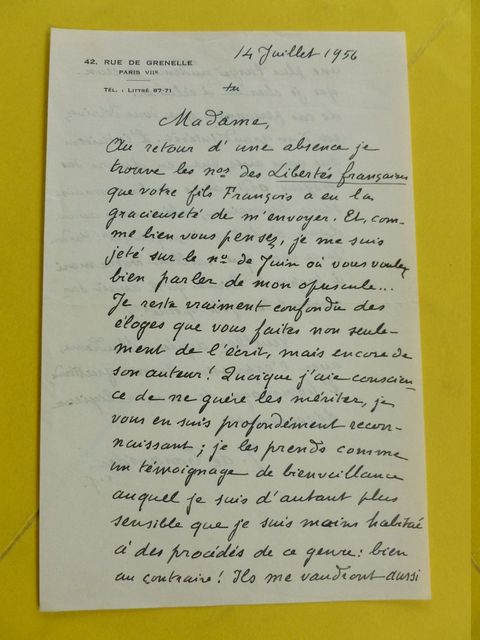 42, RUE DE GRENELLE
PARIS VIIᴱ
TÉL. : LITTRÉ 87-71
14 Juillet 1956
Madame,
Au retour d'une absence je
trouve les nos des Libertés françaises
que votre fils François a eu la
gracieuseté de m'envoyer. Et, com-
me bien vous pensez, je me suis
jeté sur le no de Juin où vous voulez
bien parler de mon opuscule...
Je reste vraiment confondu des
éloges que vous faites non seule-
ment de l'écrit, mais encore de
son auteur ! Quoique j'aie conscien-
ce de ne guère les mériter, je
vous en suis profondément recon-
naissant ; je les prends comme
un témoignage de bienveillance
auquel je suis d'autant plus
sensible que je suis moins habitué
à des procédés de ce genre : bien
au contraire ! Ils me vaudront aussi